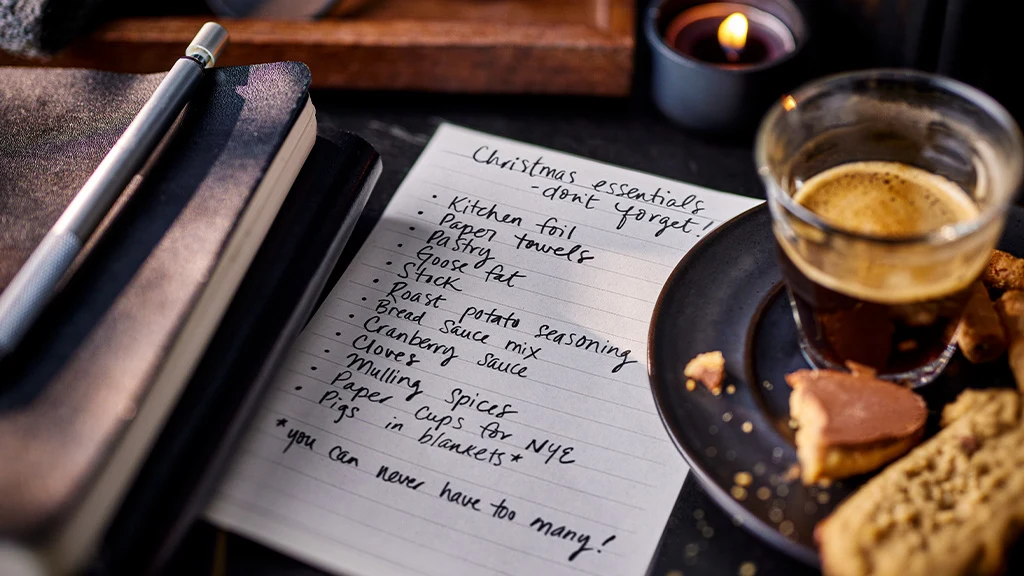 Christmas essentials
- don't forget!
• Kitchen foil
• Paper towels
• Pastry
• Goose fat
• Stock
• Roast potato seasoning
• Bread sauce mix
• Cranberry sauce
• Cloves
• Mulling spices
• Paper cups for NYE
• Pigs in blankets*
*you can never have too many!